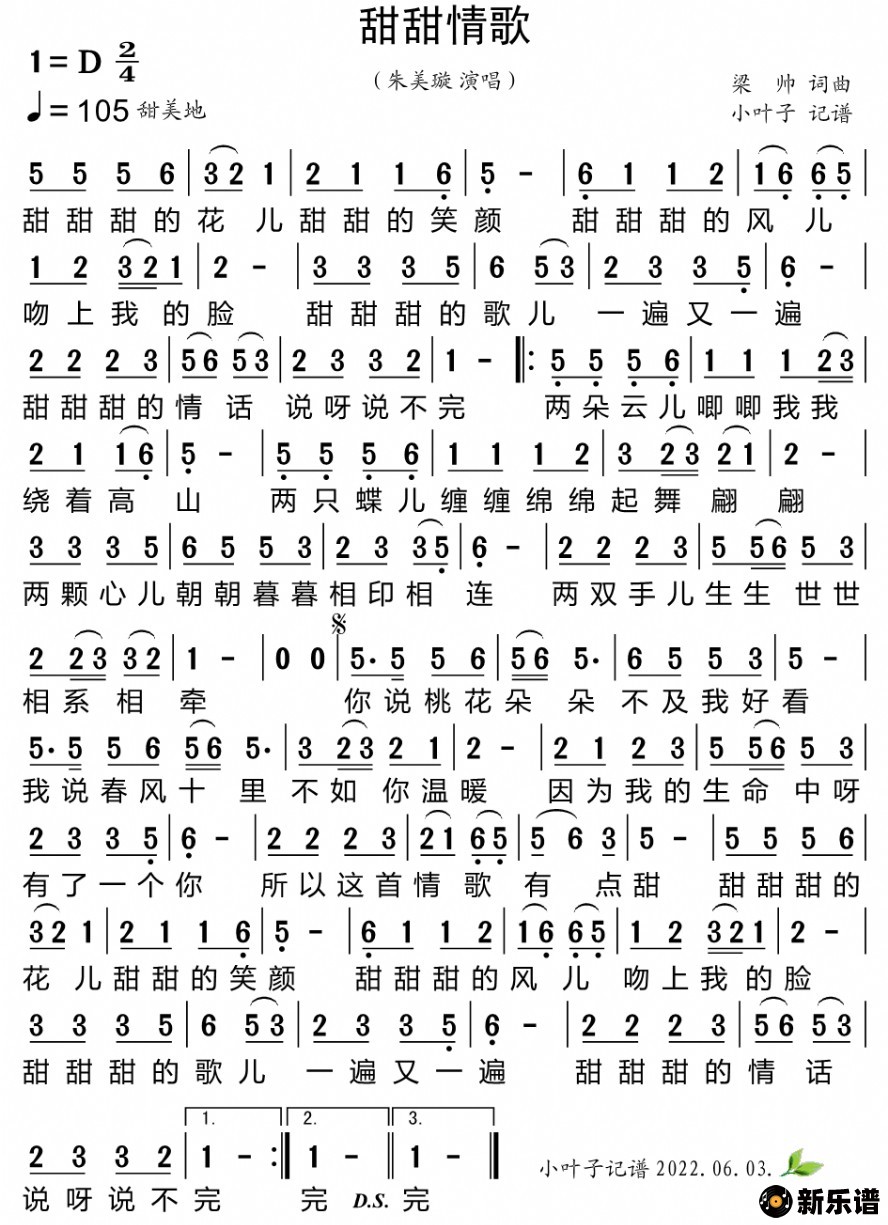 甜甜情歌
1=D 2/4
（朱美璇 演唱）
梁 帅 词曲
♩=105 甜美地
小叶子 记谱
5 5 5 6 | 3 2 1 | 2 1 1 6 | 5 - | 6 1 1 2 | 1 6 6 5 |
甜甜甜的花 儿甜甜的笑颜 甜甜甜的风 儿
1 2 3 2 1 | 2 - | 3 3 3 5 | 6 5 3 | 2 3 3 5 | 6 - |
吻上我 的脸 甜甜甜的歌儿 一遍又一遍
2 2 2 3 | 5 6 5 3 | 2 3 3 2 | 1 - ‖: 5 5 5 6 | 1 1 1 2 3 |
甜甜甜的情 话 说呀说不完 两朵云儿唧唧我我
2 1 1 6 | 5 - | 5 5 5 6 | 1 1 1 2 | 3 2 3 2 1 | 2 - |
绕着高 山 两只蝶儿缠缠绵绵起舞 翩 翩
3 3 3 5 | 6 5 5 3 | 2 3 3 5 | 6 - | 2 2 2 3 | 5 5 6 5 3 |
两颗心儿朝朝暮暮相印相 连 两双手儿生生 世世
2 2 3 3 2 | 1 - | 0 0 | 𝄋 5. 5 5 6 | 5 6 5. | 6 5 5 3 | 5 - |
相系 相 牵 你说桃花朵 朵 不及我好看
5. 5 5 6 5 6 5. | 3 2 3 2 1 | 2 - | 2 1 2 3 | 5 5 6 5 3 |
我说春风十 里 不如 你温暖 因为我的生命 中呀
2 3 3 5 | 6 - | 2 2 2 3 | 2 1 6 5 | 5 6 3 | 5 - | 5 5 5 6 |
有了一个你 所以这首情 歌 有 点甜 甜甜甜的
3 2 1 | 2 1 1 6 | 5 - | 6 1 1 2 | 1 6 6 5 | 1 2 3 2 1 | 2 - |
花 儿甜甜的笑颜 甜甜甜的风 儿 吻上我 的脸
3 3 3 5 | 6 5 3 | 2 3 3 5 | 6 - | 2 2 2 3 | 5 6 5 3 |
甜甜甜的歌儿 一遍又一遍 甜甜甜的情 话
1. 2. 3.
2 3 3 2 | 1 - :‖ 1 - ‖ 1 - ‖
小叶子记谱 2022.06.03.
说呀说不完 完 D.S. 完
新乐谱